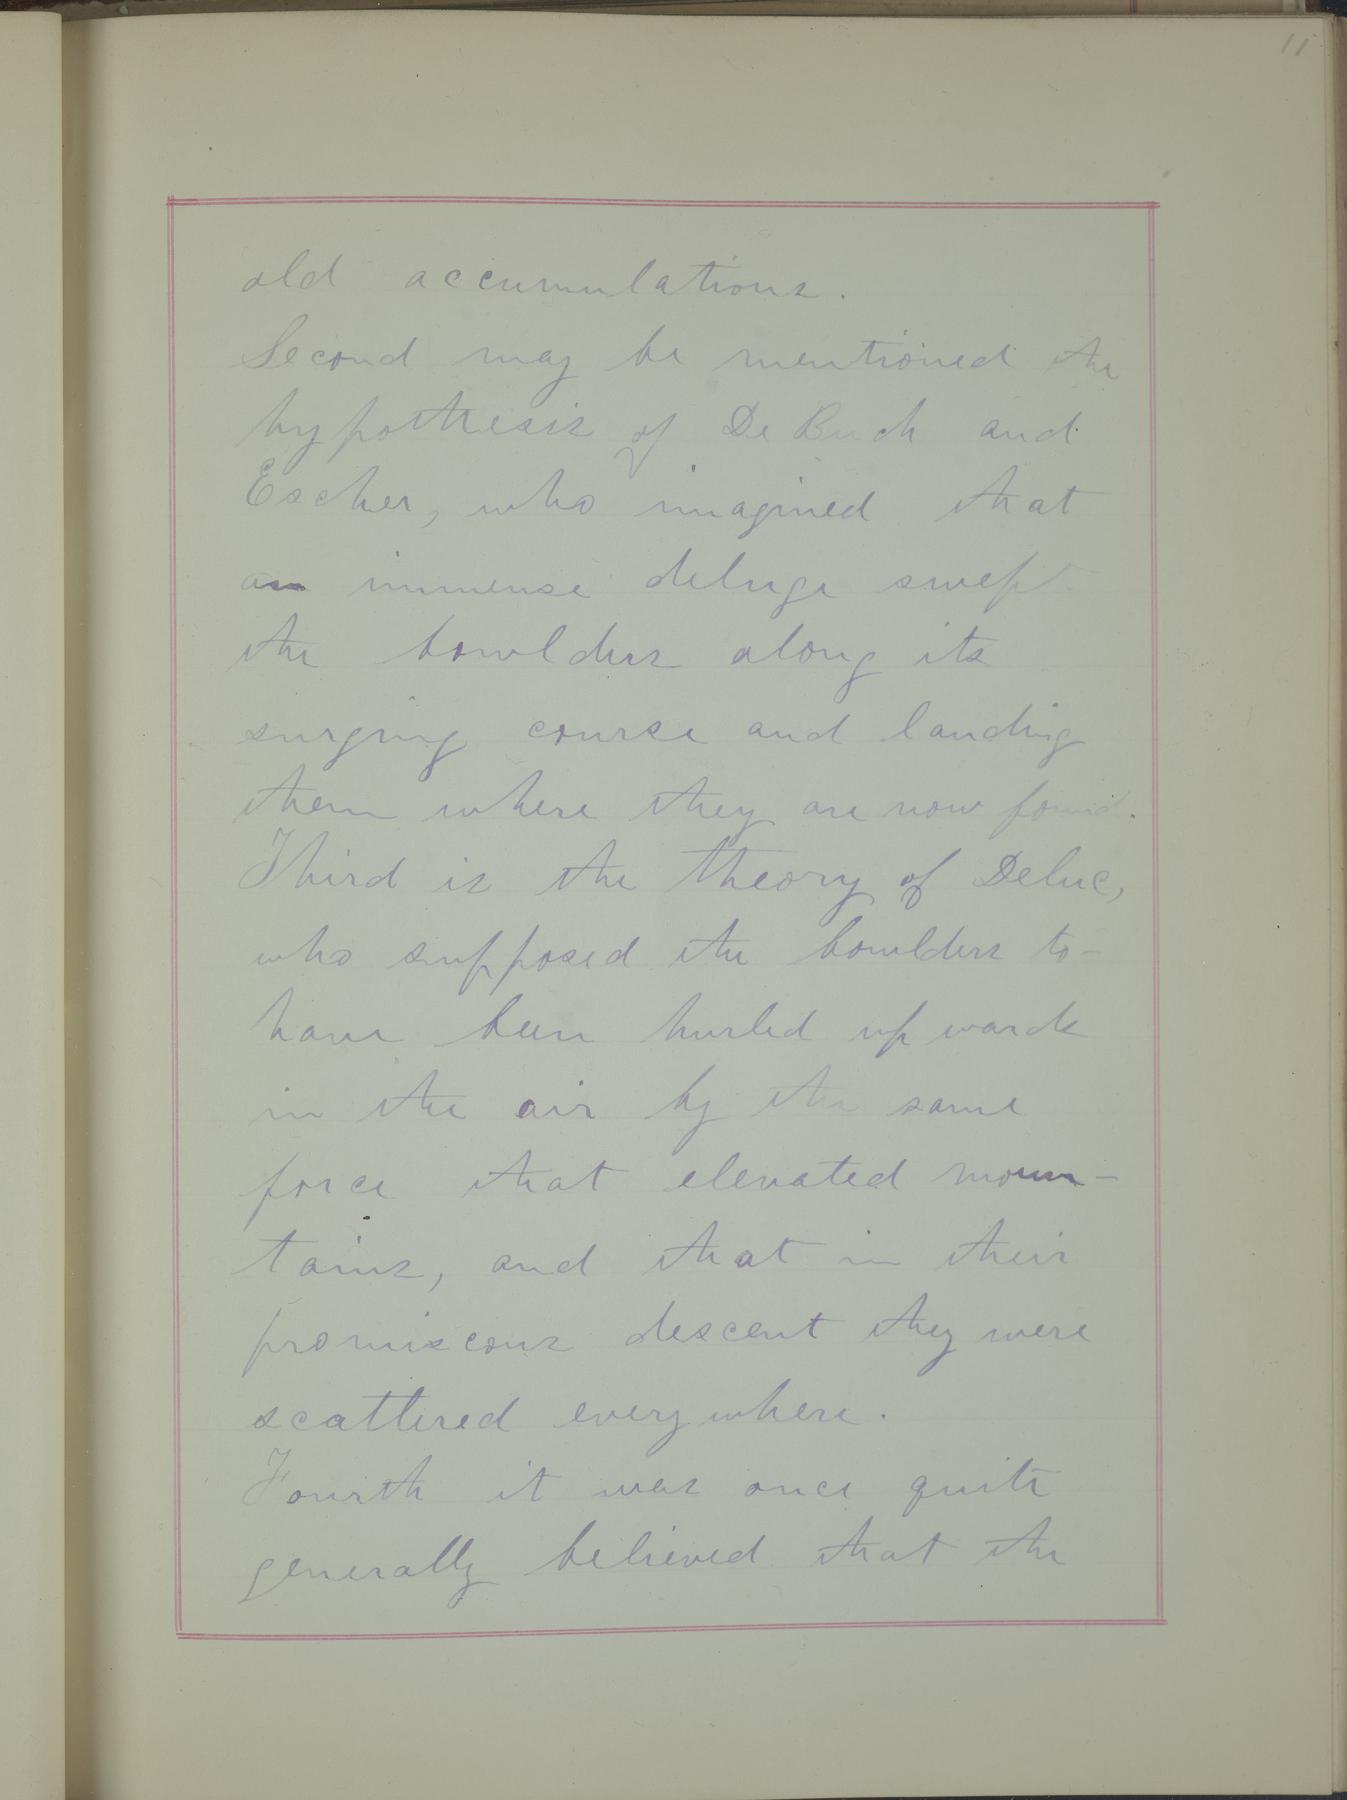 11
old accumulations.
Second may be mentioned the
hypothesis of De Buch and
Escher, who imagined that
an immense deluge swept
the bowlders along its
surging course and landing
them where they are now found.
Third is the theory of Deluc,
who supposed the bowlders to-
have been hurled upwards
in the air by the same
force that elevated moun-
tains, and that in their
promiscous descent they were
scattered everywhere.
Fourth it was once quite
generally believed that the